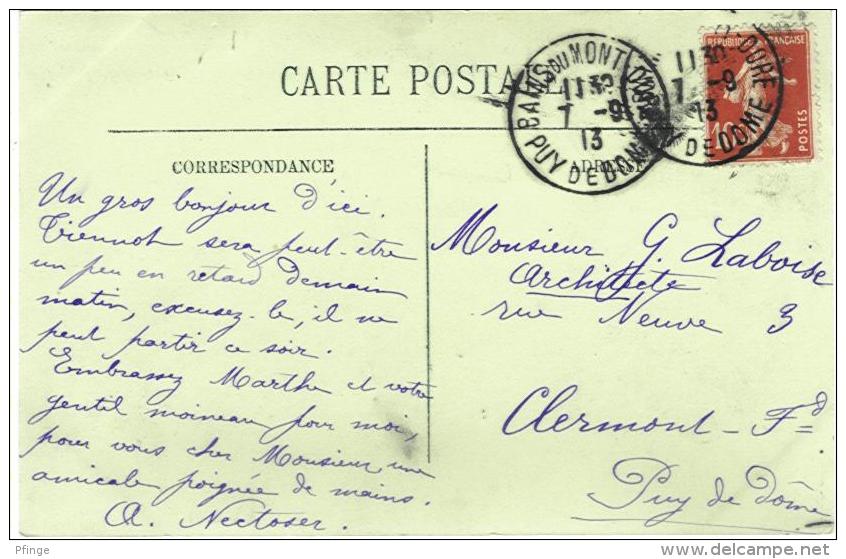 CARTE POSTALE
BAINS DU MONT-DORE
11 30
7 -9
13
PUY DE DOME
DORE
11 30
7 -9
13
DE DOME
REPUBLIQUE FRANÇAISE
10
POSTES
CORRESPONDANCE
Un gros bonjour d'ici.
Tiennot sera peut-être
un peu en retard demain
matin, excusez-le, il ne
peut partir ce soir.
Embrassez Marthe et votre
gentil moineau pour moi,
pour vous cher Monsieur une
amicale poignée de mains.
A. Nectoser.
ADRESSE
Monsieur G. Laboise
Architecte
rue Neuve 3
Clermont-Fd
Puy de Dôme
Pfinge
delcampe.net